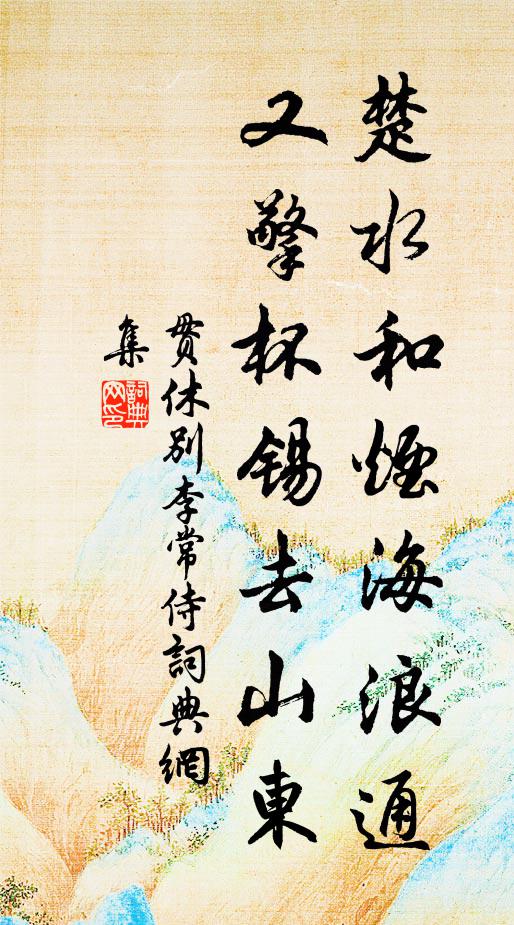 楚水和煙海浪通
又擎杯錫去山東
貫休別李常侍詞典網
集
詞典網印